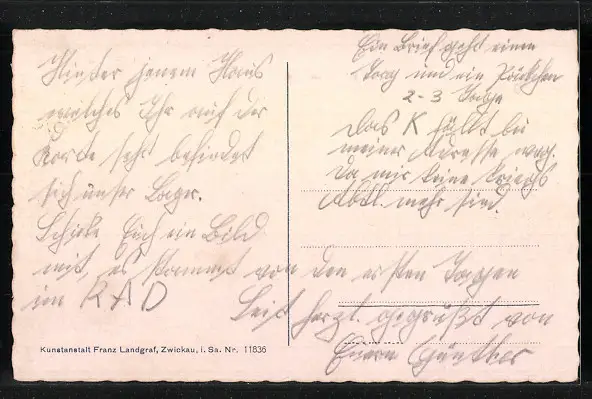 Hinter jenem Haus
welches Ihr auf der
Karte seht befindet
sich unser Lager.
Schicke Euch ein Bild
mit, es stammt von den ersten Tagen
im RAD
Ein Brief geht einen
Tag und ein Päckchen
2-3 Tage
Das K fällt bei
meiner Adresse weg.
Da wir keine Kriegs
Abtl. mehr sind.
Seit herzl. gegrüßt von
Euern Günther
Kunstanstalt Franz Landgraf, Zwickau, i. Sa. Nr. 11836